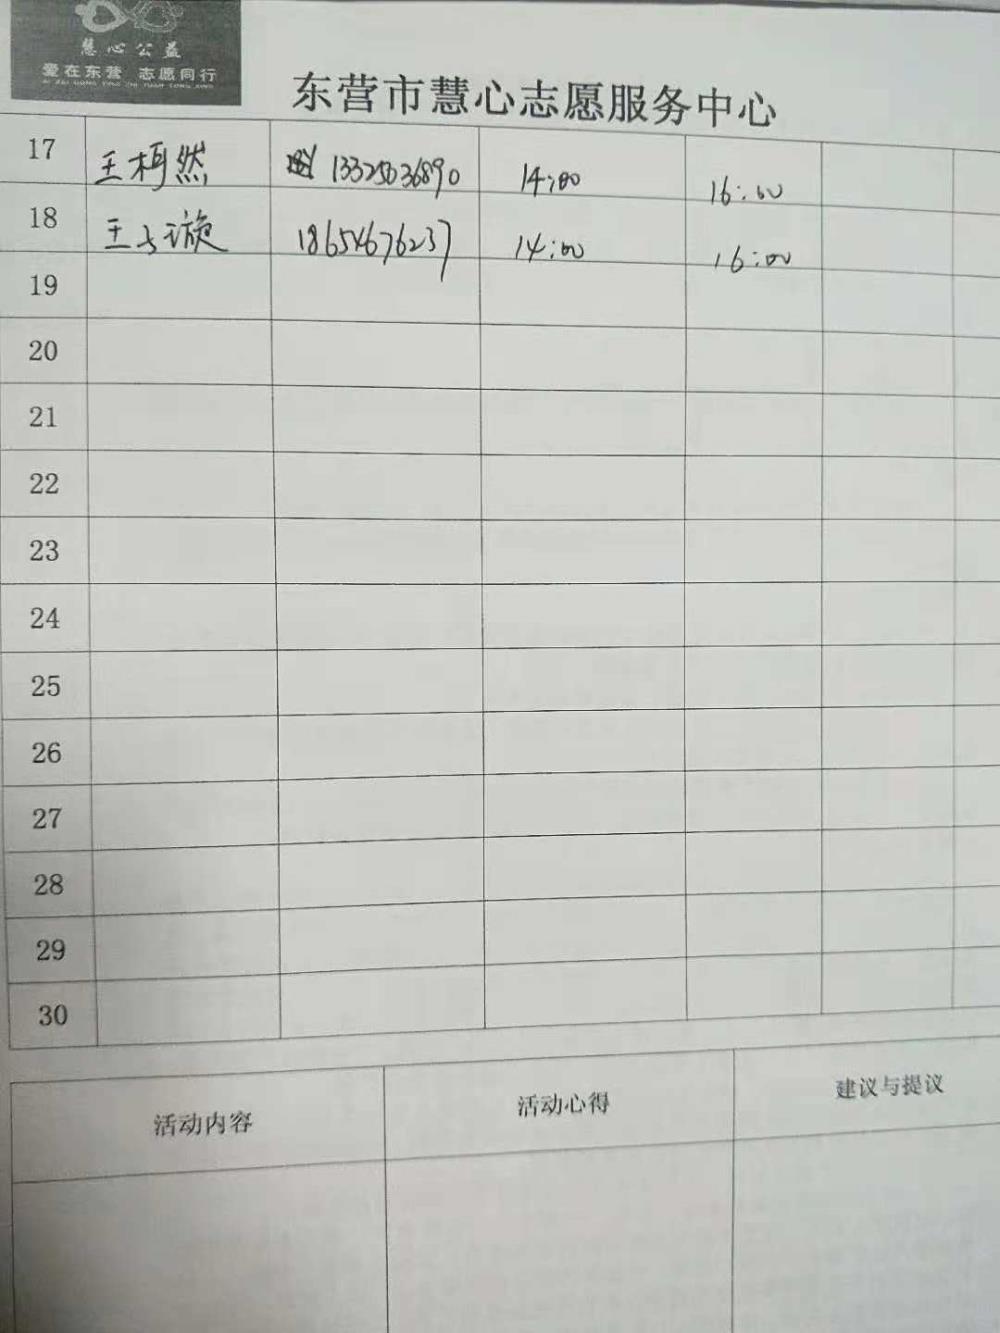 慧心公益
爱在东营 志愿同行
东营市慧心志愿服务中心
17 王柯然 13325036890 14:00 16:00
18 王 漩 18654676237 14:00 16:00
19
20
21
22
23
24
25
26
27
28
29
30
活动内容 活动心得 建议与提议